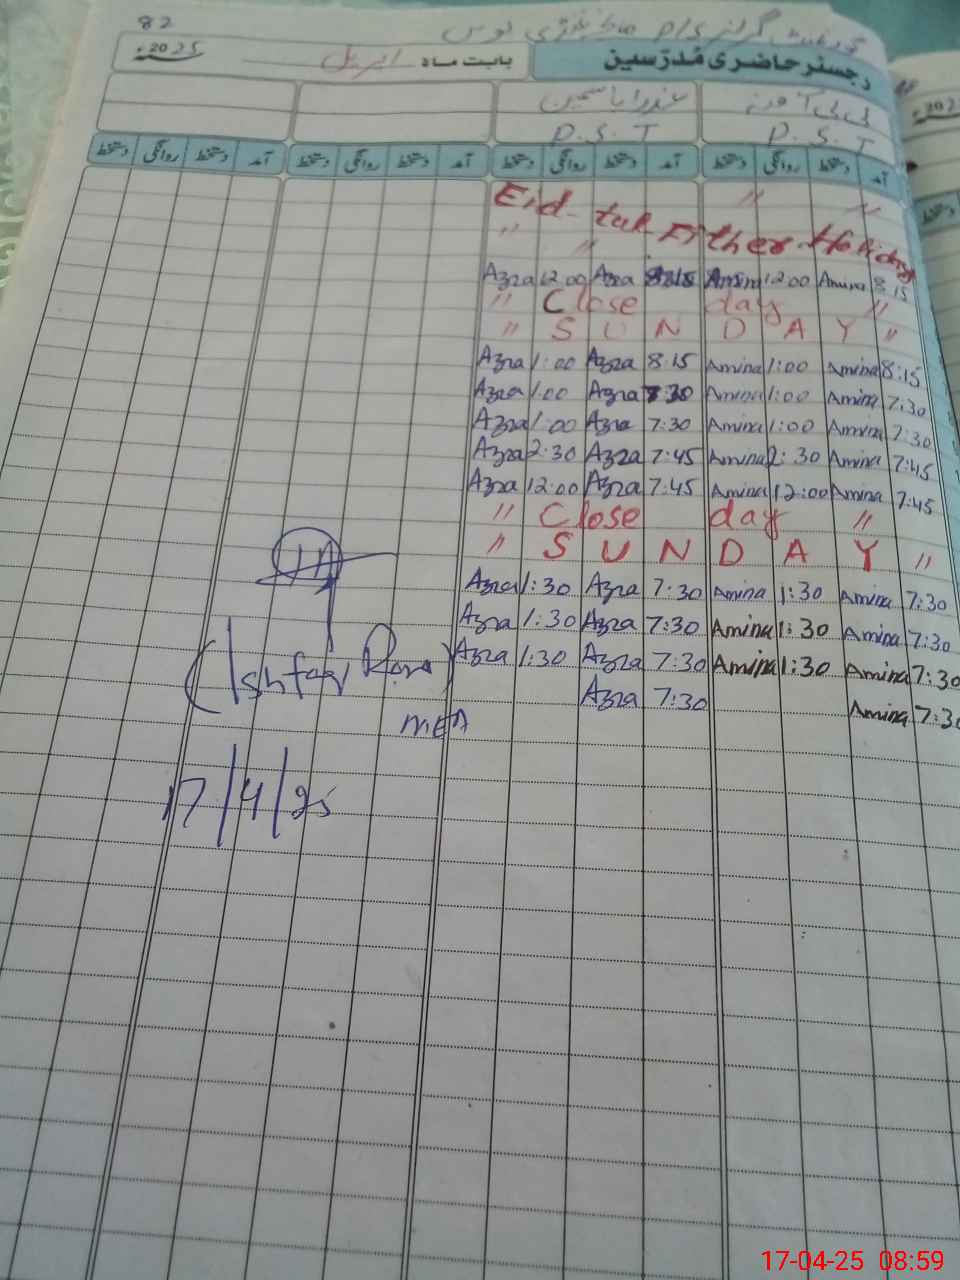 82
گورنمنٹ گرلز
رجسٹر حاضری مُدرّسین بابت ماہ اپریل 2025ء
بی بی آمنہ عذرا یاسمین
P.S.T P.S.T
آمد دستخط روانگی دستخط آمد دستخط روانگی دستخط آمد دستخط روانگی دستخط آمد دستخط روانگی دستخط
Eid-tul Fither Holidays
Azra 12:00 Azra 8:15 Amina 12:00 Amina 8:15
" Close day "
" S U N D A Y "
Azra 1:00 Azra 8:15 Amina 1:00 Amina 8:15
Azra 1:00 Azra 7:30 Amina 1:00 Amina 7:30
Azra 1:00 Azra 7:30 Amina 1:00 Amina 7:30
Azra 2:30 Azra 7:45 Amina 2:30 Amina 7:45
Azra 12:00 Azra 7:45 Amina 12:00 Amina 7:45
" Close day "
" S U N D A Y "
Azra 1:30 Azra 7:30 Amina 1:30 Amina 7:30
Azra 1:30 Azra 7:30 Amina 1:30 Amina 7:30
Azra 1:30 Azra 7:30 Amina 1:30 Amina 7:30
Azra 7:30 Amina 7:30
(Ishfaq Rana)
MEA
17/4/25
17-04-25 08:59